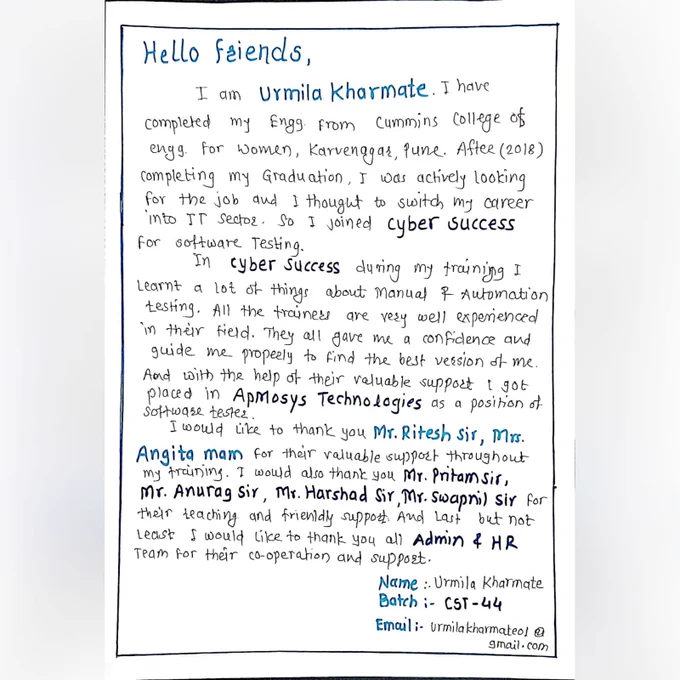 Hello friends,
I am Urmila Kharmate. I have
completed my Engg. from Cummins College of
engg. for women, Karvenagar, Pune. After (2018)
completing my Graduation, I was actively looking
for the job and I thought to switch my career
into IT Sector. So I joined Cyber Success
for software Testing.
In Cyber Success during my training I
Learnt a lot of things about Manual & Automation
testing. All the trainers are very well experienced
in their field. They all gave me a confidence and
guide me properly to find the best version of me.
And with the help of their valuable support I got
placed in ApMosys Technologies as a position of
Software tester.
I would like to thank you Mr. Ritesh Sir, Mrs.
Angita mam for their valuable support throughout
my training. I would also thank you Mr. Pritam Sir,
Mr. Anurag Sir, Mr. Harshad Sir, Mr. Swapnil Sir for
their teaching and friendly support. And Last but not
Least I would like to thank you all Admin & HR
Team for their co-operation and support.
Name :- Urmila Kharmate
Batch :- CST-44
Email :- urmilakharmate01@
gmail.com